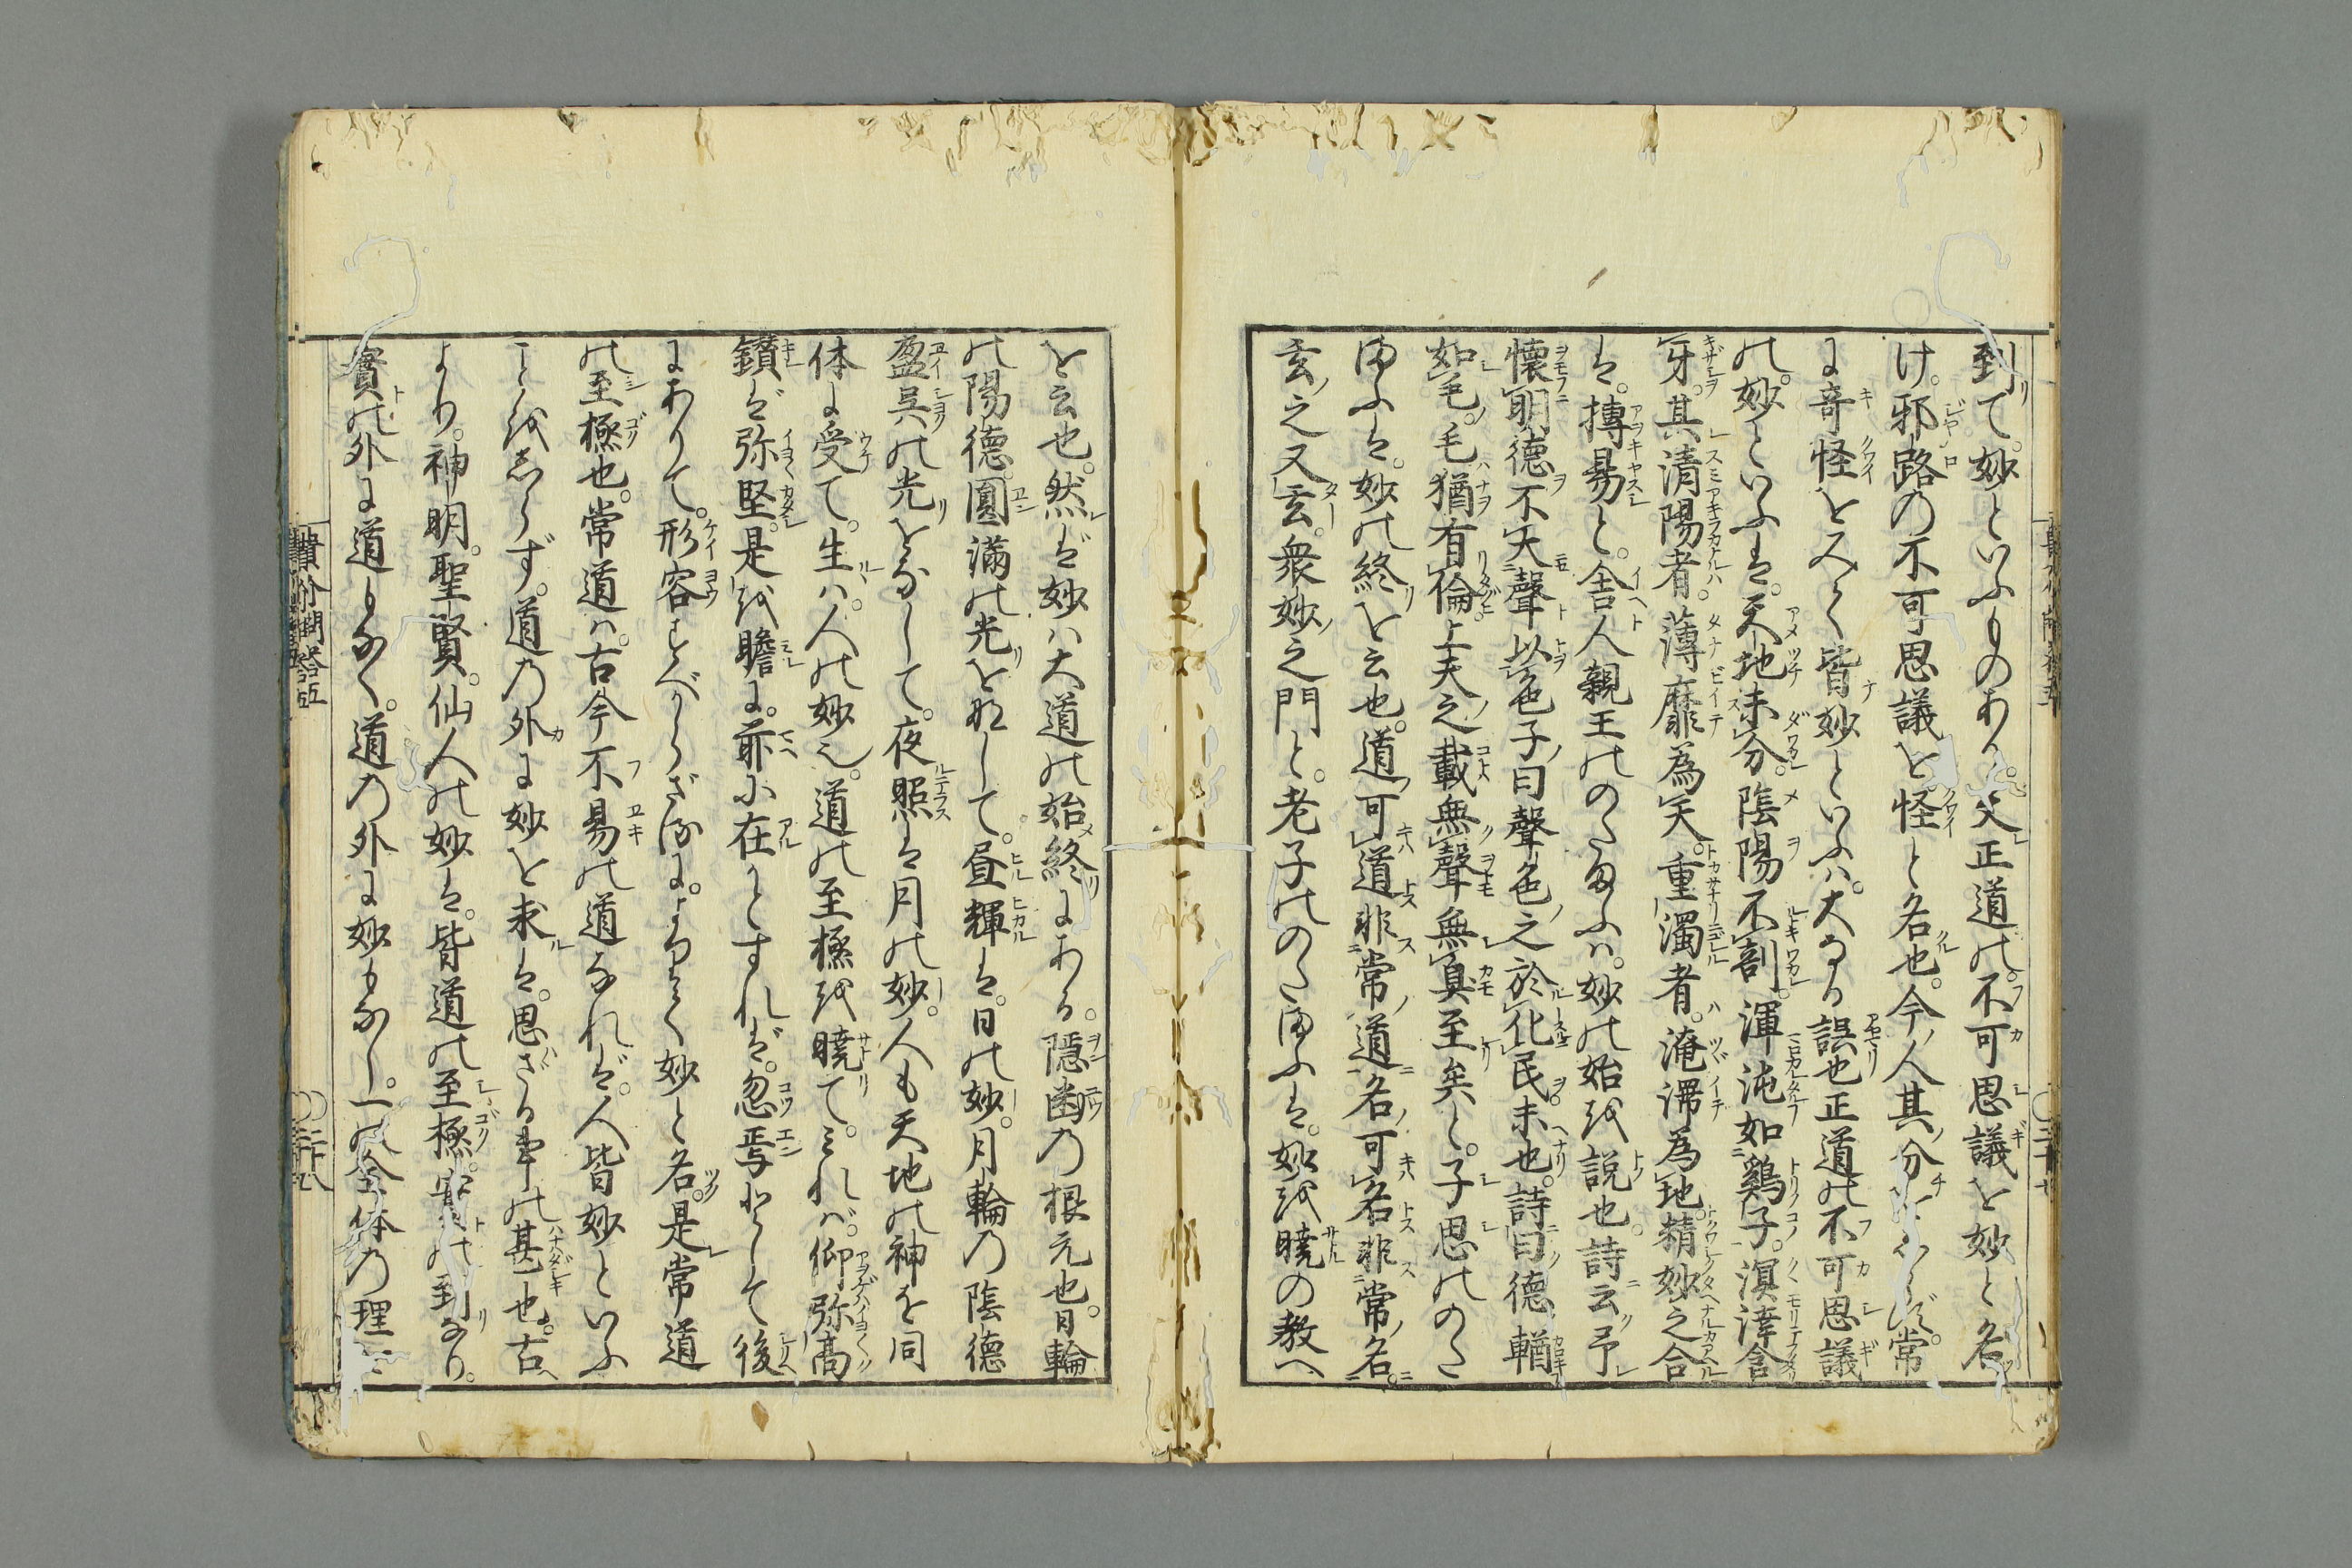 到て。妙といふものあり。夫正道の。不可思議を妙と名
け。邪路の不可思議を怪と名也。今人其分
常
に奇怪をみて皆妙といふハ。大なる誤也正道の不可思議
の。妙といふは。天地未分。陰陽不剖。渾沌如鶏子。溟涬含
牙。其清陽者。薄靡為天。重濁者。淹滞為地。精妙之合
は。摶易と。舎人親王ののたまふハ。妙の始を説也。詩云予
懐明徳不大聲以色子曰聲色之於化民未也。詩曰徳輶
如毛。毛猶有倫上天之載無聲無臭至矣と。子思ののた
まふは。妙の終を云也。道可道非常道名可名非常名。
玄之又玄。衆妙之門と。老子ののたまふは。妙を暁の教へ
を云也。然ば妙ハ大道の始終にあり。隠
の根元也。日輪
の陽徳圓満の光を
して。昼輝は。日の妙。月輪の陰徳
盈昃の光をなして。夜照は月の妙。人も天地の神を同
体に受て。生ハ。人の妙也。道の至極を暁てみれバ。仰弥高
鑚ば弥堅。是を瞻に。前に在とすれば。忽焉として後
にありて。形容すべからざるに。よりて妙と名。是常道
の至極也。常道ハ。古今不易の道なれば。人皆妙といふ
ことをしらず。道の外に妙を求は。思ざる事の甚也。古
より。神明。聖賢。仙人の妙は。皆道の至極。實の到なり。
實の外に道もなく。道の外に妙もなし。一の全体の理二
貴
分問答五